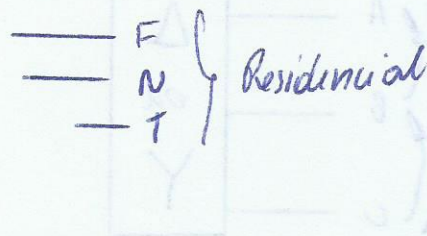 F
N Residencial
T